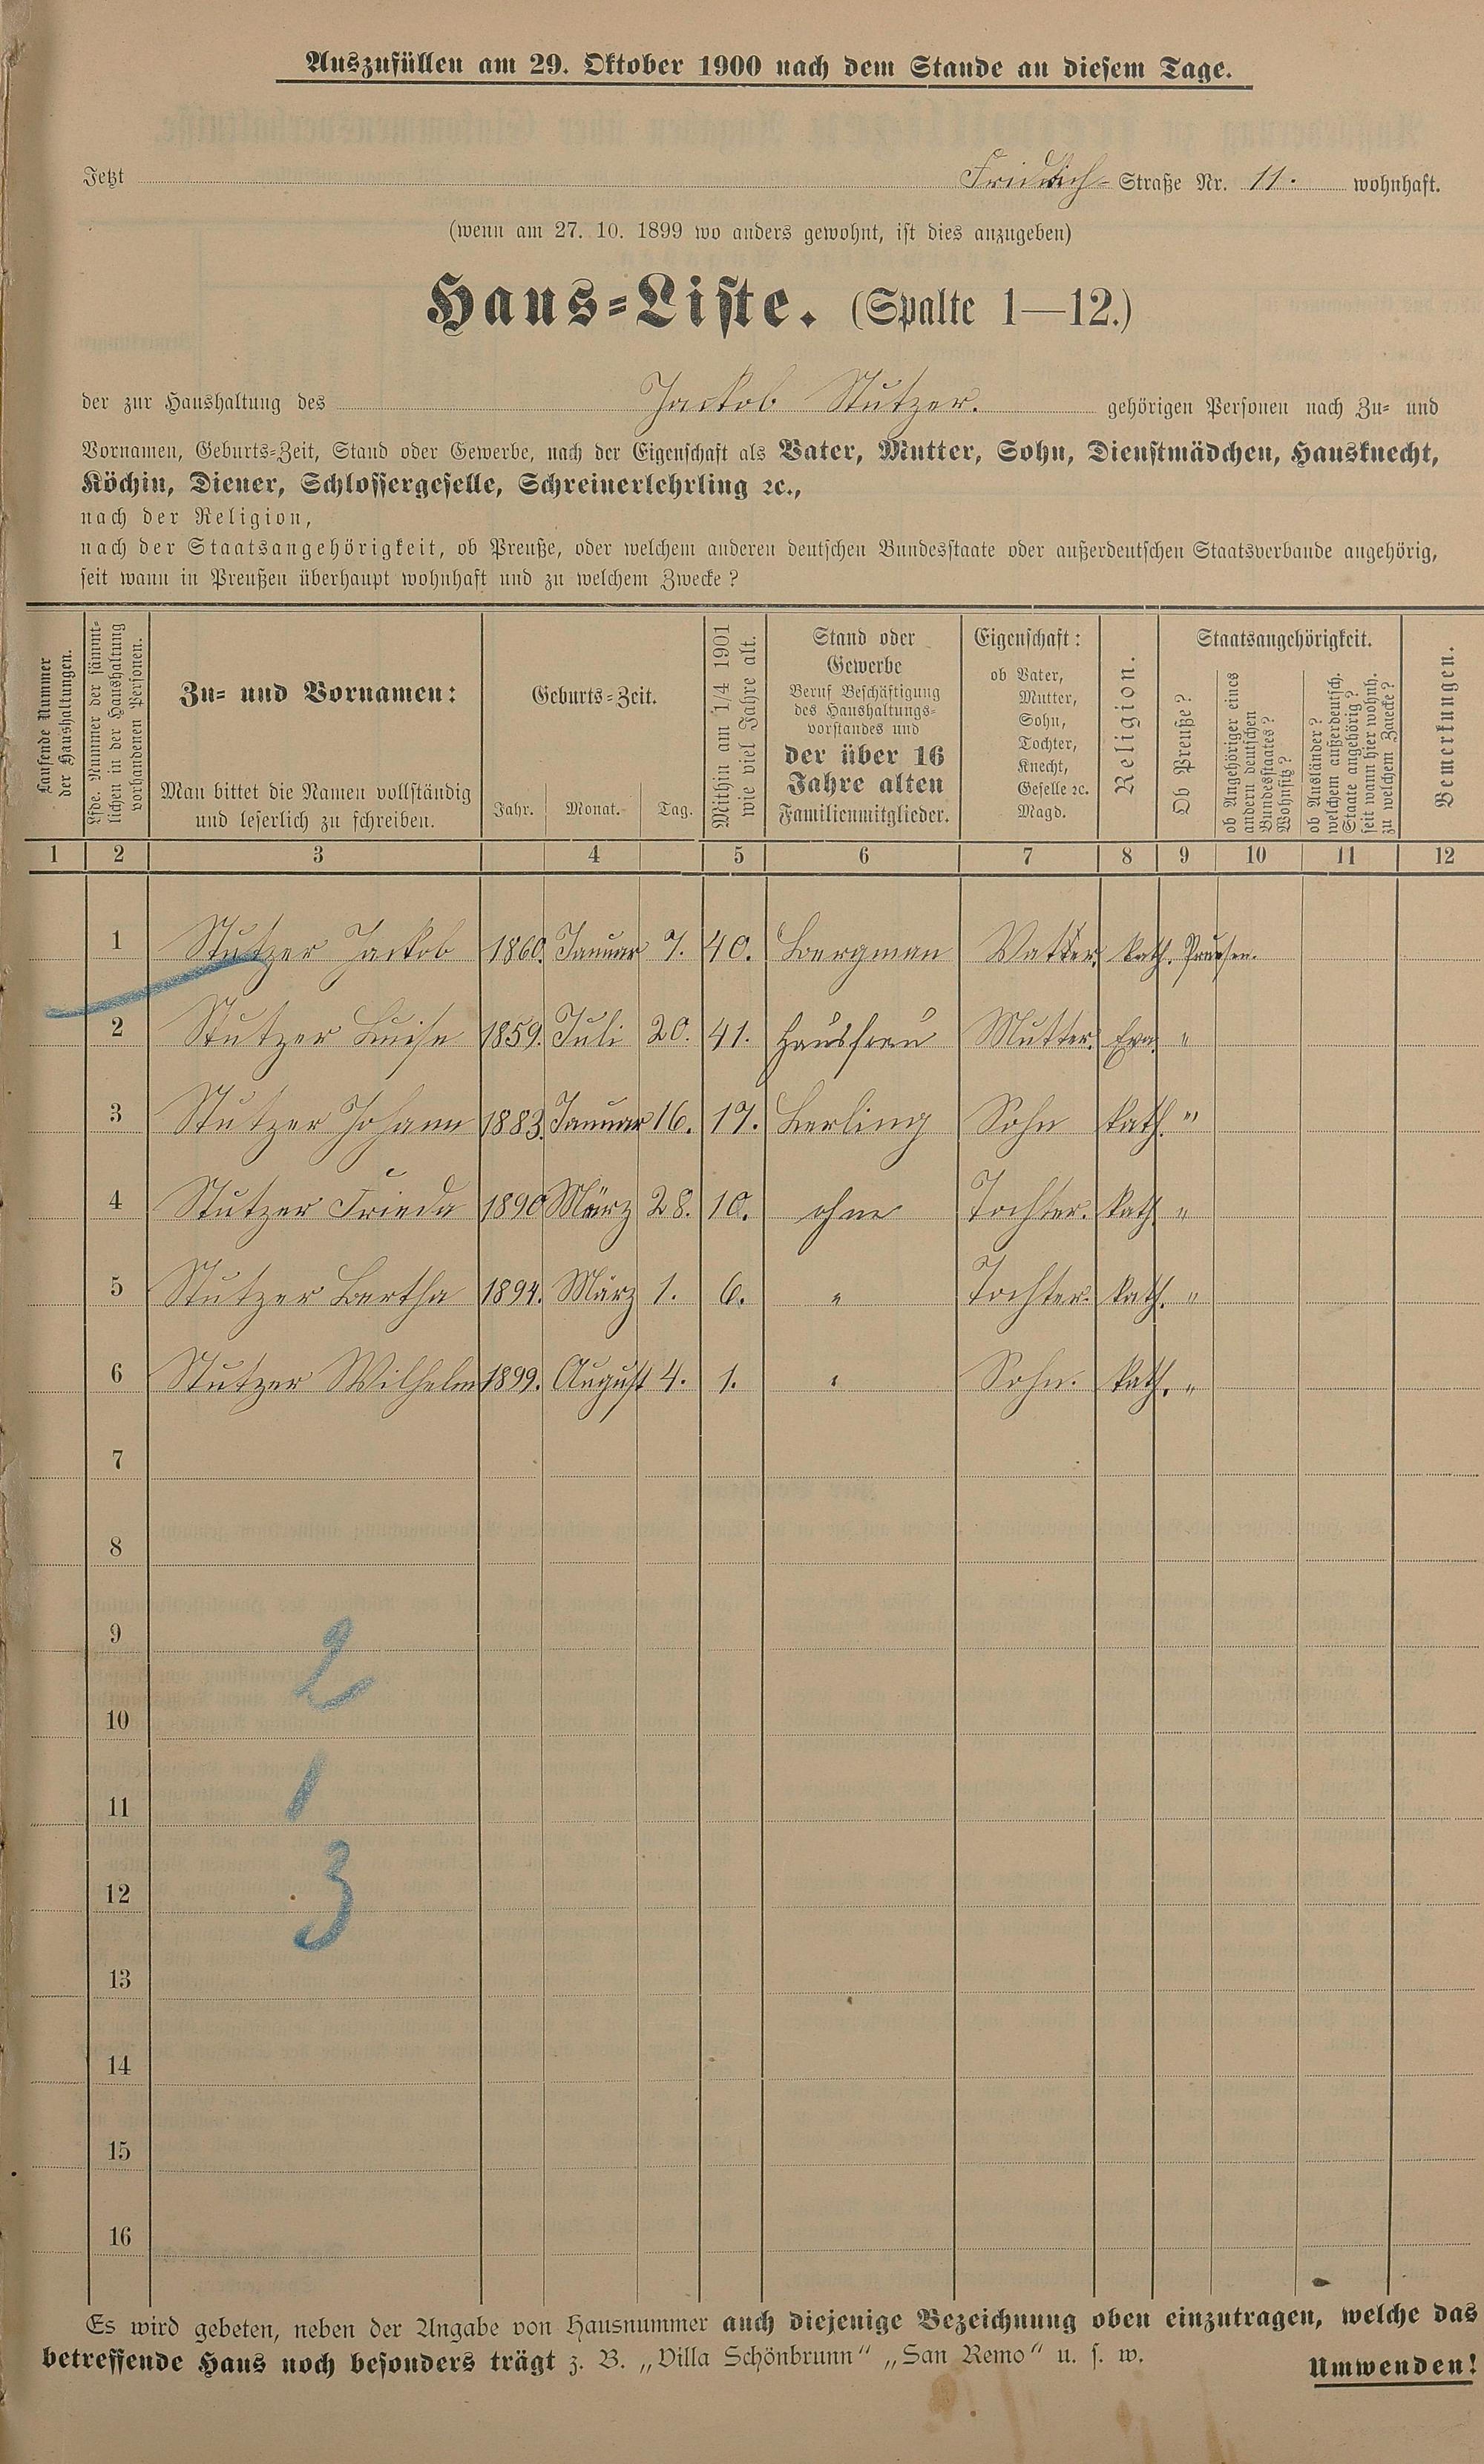 Auszufüllen am 29. Oktober 1900 nach dem Stande an diesem Tage.
Jetzt Fridrich- Straße Nr. 11. wohnhaft.
(wenn am 27. 10. 1899 wo anders gewohnt, ist dies anzugeben)
Haus-Liste. (Spalte 1—12.)
der zur Haushaltung des Jackob Stutzer. gehörigen Personen nach Zu- und
Vornamen, Geburts-Zeit, Stand oder Gewerbe, nach der Eigenschaft als Vater, Mutter, Sohn, Dienstmädchen, Hausknecht,
Köchin, Diener, Schlossergeselle, Schreinerlehrling ꝛc.,
nach der Religion,
nach der Staatsangehörigkeit, ob Preuße, oder welchem anderen deutschen Bundesstaate oder außerdeutschen Staatsverbande angehörig,
seit wann in Preußen überhaupt wohnhaft und zu welchem Zwecke?
Laufende Nummer
der Haushaltungen.
Lfde. Nummer der sämmt-
lichen in der Haushaltung
vorhandenen Personen.
Zu- und Vornamen:
Man bittet die Namen vollständig
und leserlich zu schreiben.
Geburts-Zeit.
Jahr. Monat. Tag.
Mithin am 1/4 1901
wie viel Jahre alt.
Stand oder
Gewerbe
Beruf Beschäftigung
des Haushaltungs-
vorstandes und
der über 16
Jahre alten
Familienmitglieder.
Eigenschaft:
ob Vater,
Mutter,
Sohn,
Tochter,
Knecht,
Geselle ꝛc.
Magd.
Religion.
Staatsangehörigkeit.
Ob Preuße?
ob Angehöriger eines
andern deutschen
Bundesstaates?
Wohnsitz?
ob Ausländer?
welchem außerdeutsch.
Staate angehörig?
seit wann hier wohnh.
zu welchem Zwecke?
Bemerkungen.
1 2 3 4 5 6 7 8 9 10 11 12
1 Stutzer Jackob 1860. Januar 7. 40. Bergman Vatter. kath. Preusen.
2 Stutzer Luise 1859. Juli 20. 41. Hausfrau Mutter. Eva. "
3 Stutzer Johann 1883. Januar 16. 17. Lerling Sohn kath. "
4 Stutzer Frieda 1890 März 28. 10. ohne Tochter. kath. "
5 Stutzer Bertha 1894. März 1. 6. " Tochter. kath. "
6 Stutzer Wilhelm 1899. August 4. 1. " Sohn. kath. "
7
8
9
2
10
1
11
3
12
13
14
15
16
Es wird gebeten, neben der Angabe von Hausnummer auch diejenige Bezeichnung oben einzutragen, welche das
betreffende Haus noch besonders trägt z. B. „Villa Schönbrunn“ „San Remo“ u. s. w.
Umwenden!